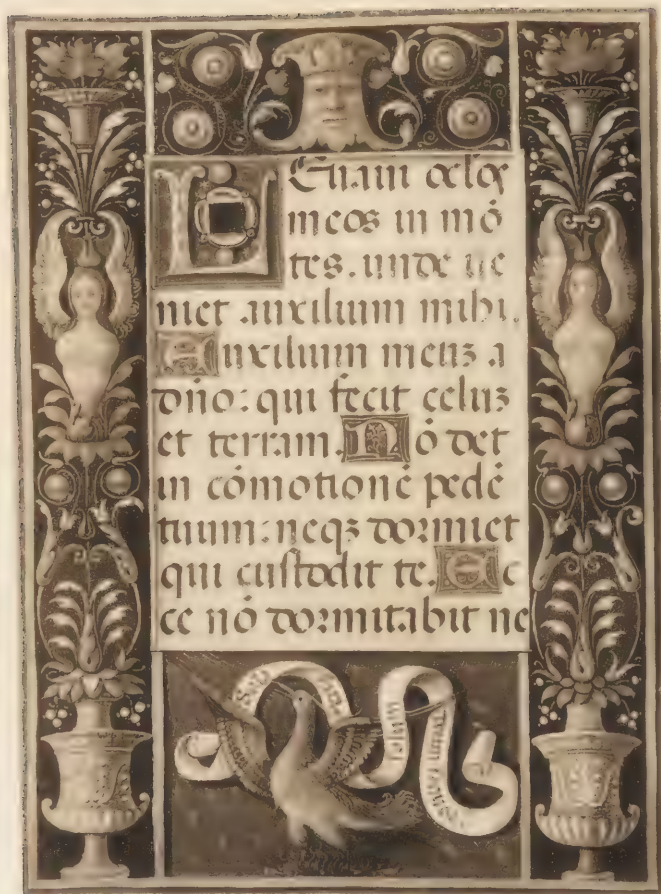 LEuaui oclos
meos in mō
tes. unde ue
niet auxilium mihi.
Auxilium meuʒ a
dño: qui fecit celuʒ
et terram. Nō det
in cōmotionē pedē
tuum: neqʒ dormiet
qui custodit te. Ec
ce nō dormitabit ne